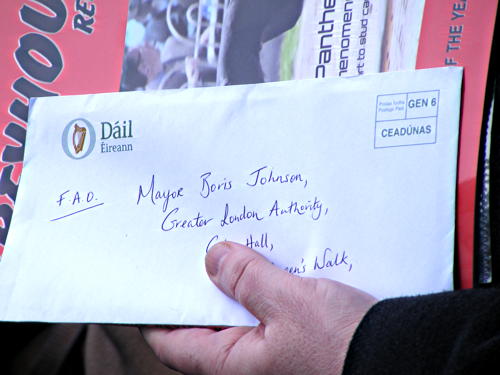 REYHOU
RE
Panthe
henomen
rt to stud ca
OF THE YE
Dáil
Éireann
Postas Íoctha
Postage Paid
GEN 6
CEADÚNAS
F.A.O.
Mayor Boris Johnson,
Greater London Authority,
Hall,
een's Walk,